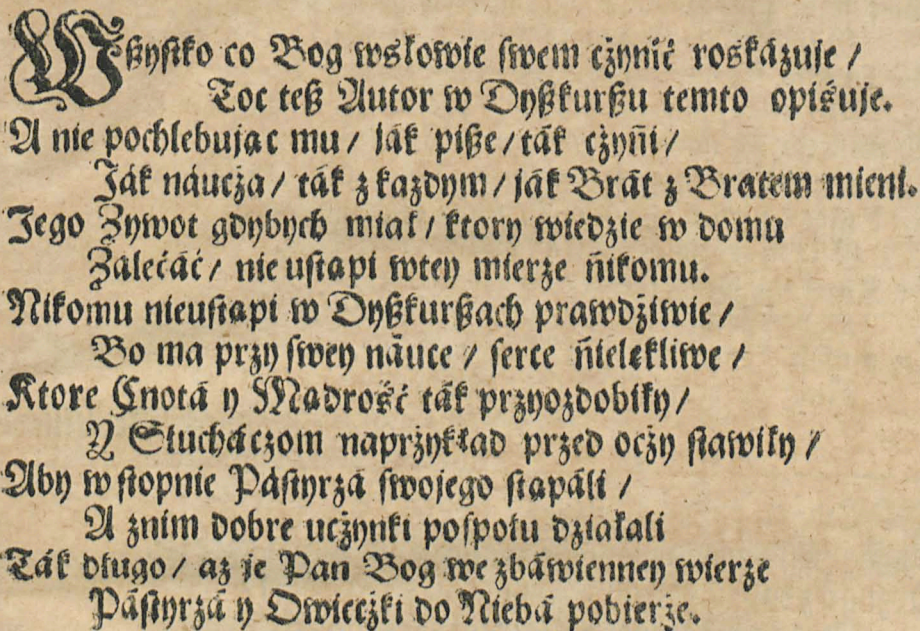 Wßyſtko co Bog wsłowie ſwem cżynić roskázuje /
Toc teß Autor w Dyßkurßu temto opiśuje.
A nie pochlebujac mu / ják piße / ták cżyńi /
Ják náucża / ták z kazdym / ják Brát z Bratem mieni.
Jego Zywot gdybych miał / ktory wiedzie w domu
Zalećáć / nie uſtapi wtey mierze ńikomu.
Nikomu nieuſtapi w Dyßkurßach prawdźiwie /
Bo ma przy ſwey náuce / ſerce ńielękliwe /
Ktore Cnotá y Madrość ták przyozdobiły /
Y Słucháczom naprżykład przed ocży ſtawiły /
Aby w ſtopnie Páſtyrzá ſwojego ſtapáli /
A żnim dobre ucżynki poſpołu dzialali
Ták długo / aż je Pan Bog we zbáwienney wierze
Páſtyrzá y Owiecżki do Niebá pobierże.